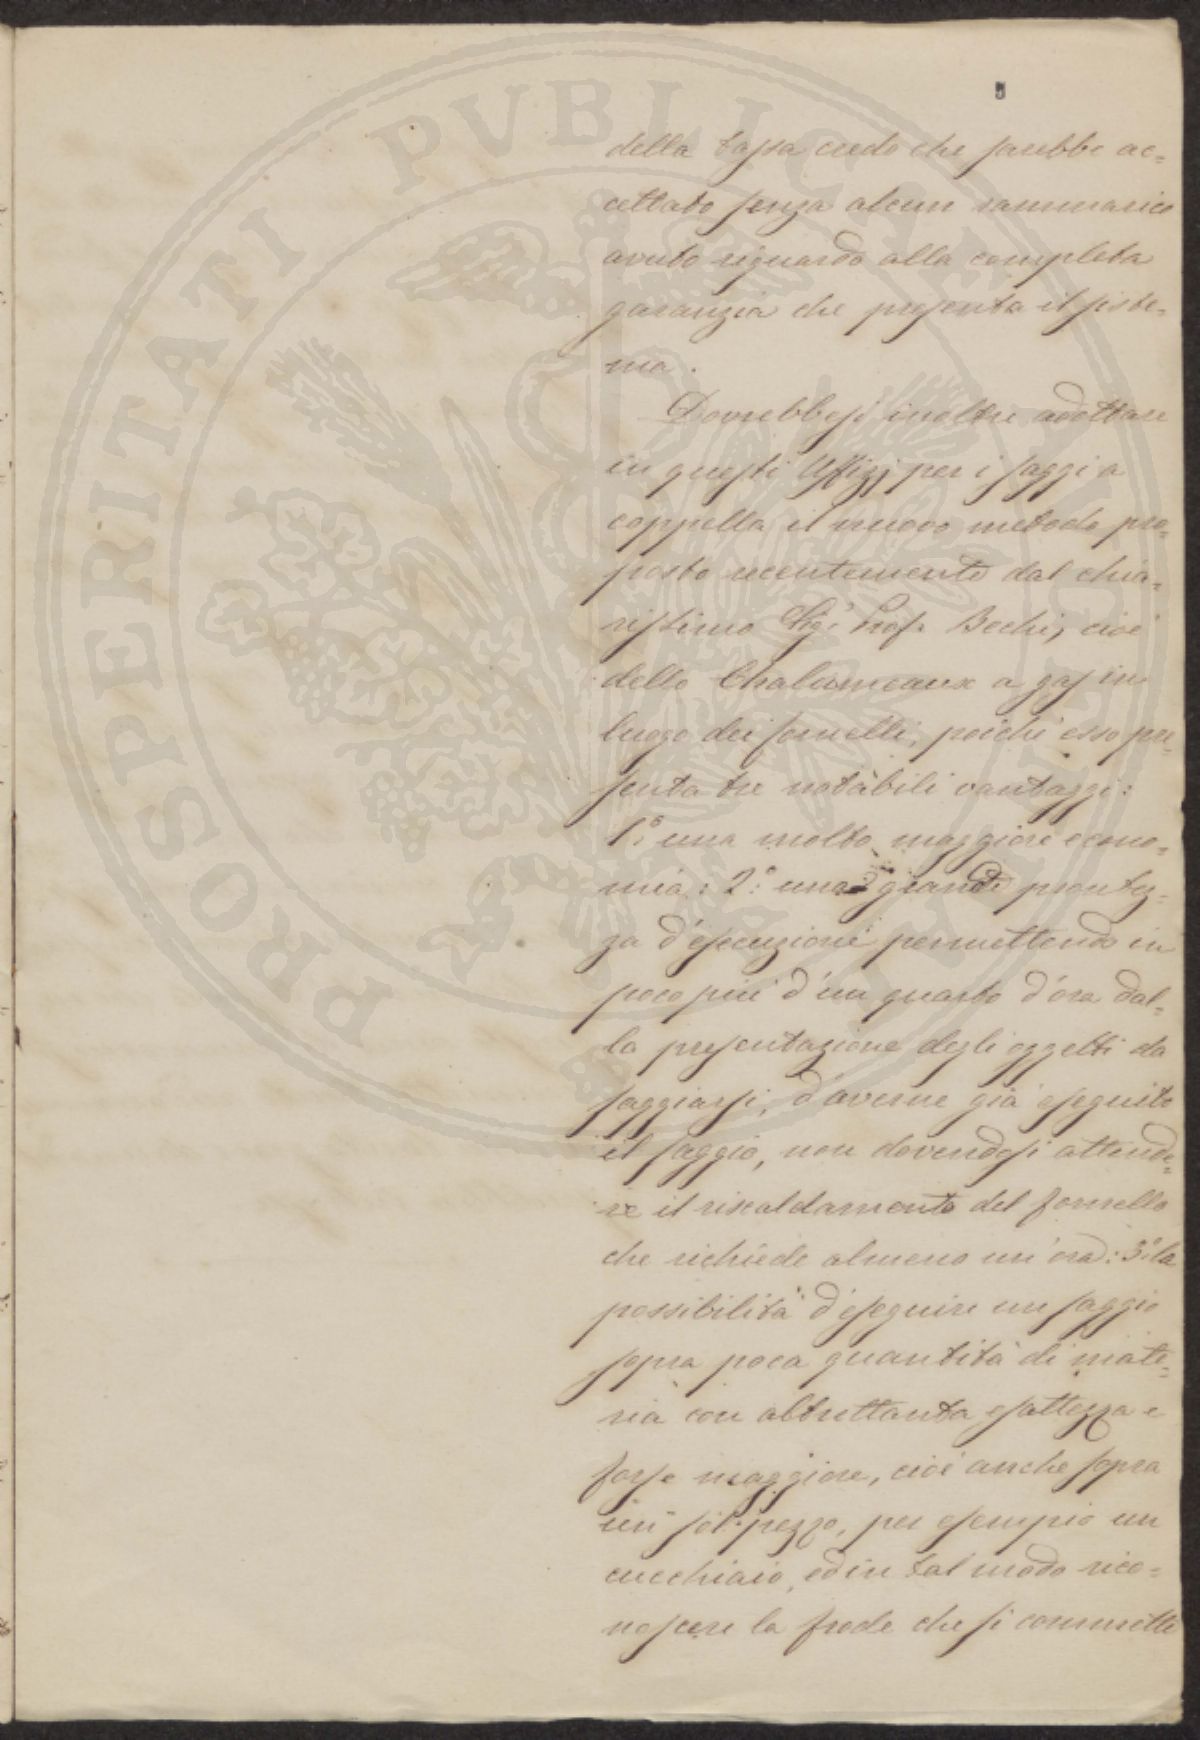 5
della tassa credo che sarebbe ac=
cettato senza alcun rammarico
avuto riguardo alla completa
garanzia che presenta il siste=
ma.
Dovrebbesi inoltre adottare
in questi Uffizj per i saggi a
coppella il nuovo metodo pro=
posto recentemente dal chia=
rissimo Sigr. Prof. Bechi, cioè
dello Chalumeaux a gas in
luogo dei fornelli, poichè esso pre=
senta tre notabili vantaggi:
1.° una molto maggiore econo=
mia: 2.° una grande prontez=
za d'esecuzione permettendo in
poco piu d'un quarto d'ora dal=
la presentazione degli oggetti da
saggiarsi, d'averne già eseguito
il saggio, non dovendosi attende=
re il riscaldamento del fornello
che richiede almeno un'ora: 3.° la
possibilità d'eseguire un saggio
sopra poca quantità di mate=
ria con altrettanta esattezza e
forse maggiore, cioè anche sopra
un sol pezzo, per esempio un
cucchiaio, ed in tal modo rico=
noscere la frode che si commette
PROSPERITATI PVBLICAE